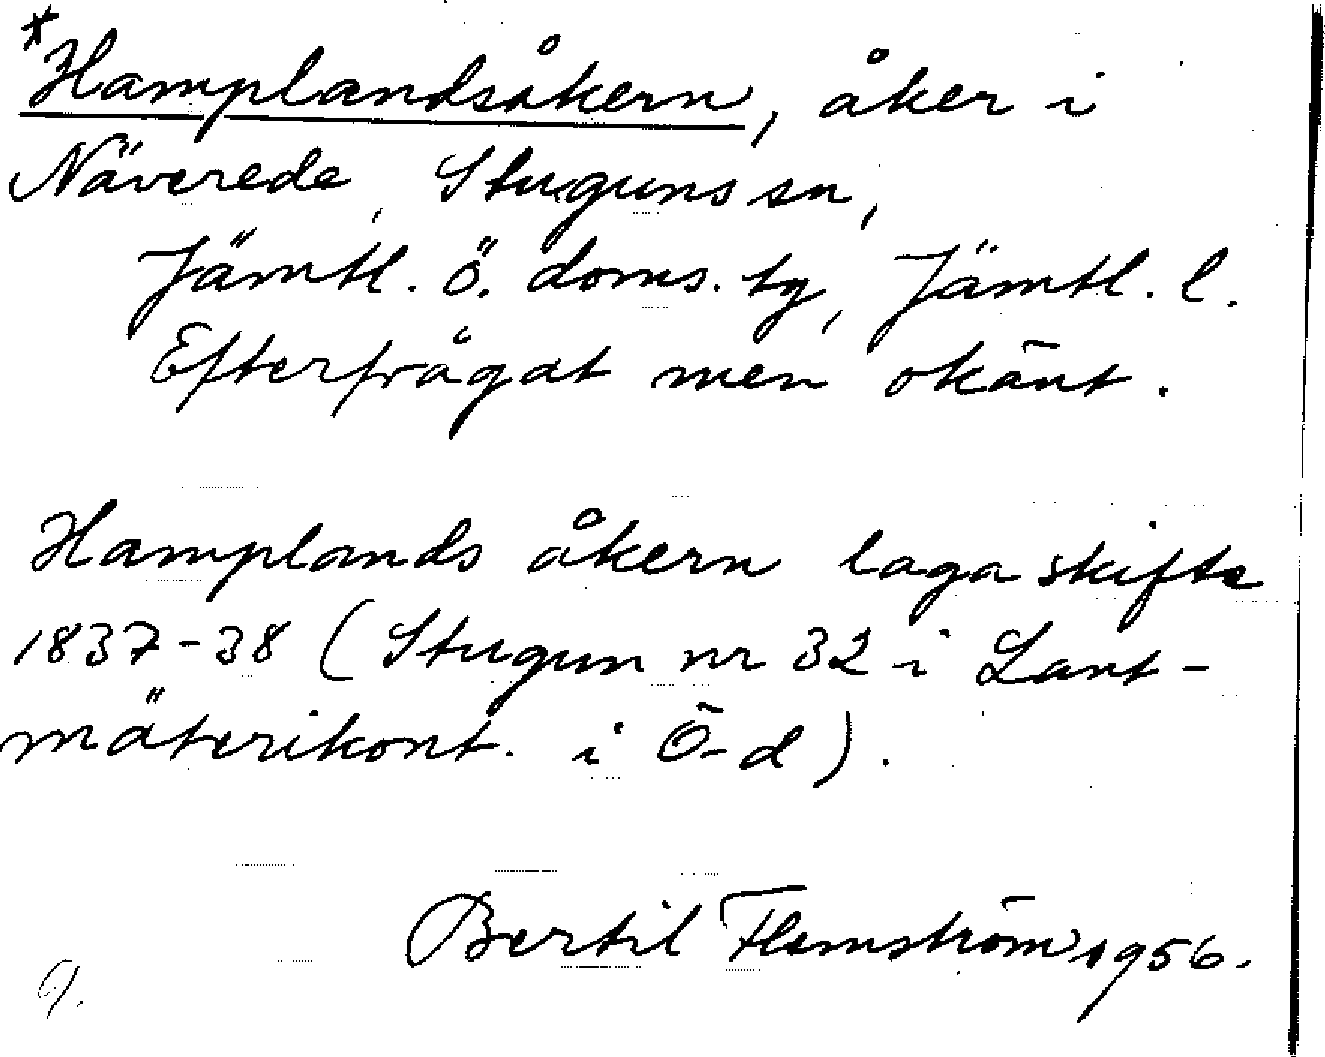 *Hamplandsåkern, åker i
Näverede, Stuguns sn,
Jämtl. ö. doms. tg, Jämtl. l.
Efterfrågat men okänt.
Hamplands åkern laga skifte
1837-38 (Stugun nr 32 i Lant-
mäterikont. i Ö-d).
Bertil Flemström 1956.